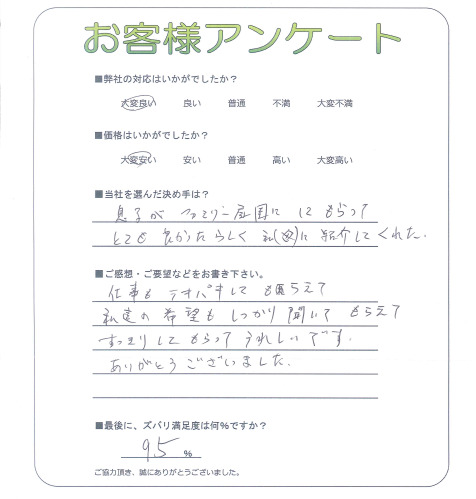 お客様アンケート
■弊社の対応はいかがでしたか?
大変良い 良い 普通 不満 大変不満
■価格はいかがでしたか?
大変安い 安い 普通 高い 大変高い
■当社を選んだ決め手は?
息子が ファミリー 国に にもらって
とても 良かったらしく 私(父)に 紹介してくれた.
■ご感想・ご要望などをお書き下さい。
仕事も テキパキして もらえて
私達の 希望も しっかり 聞いて もらえて
すっきりして もらって うれしいです.
ありがとうございました.
■最後に、ズバリ満足度は何%ですか?
95 %
ご協力頂き、誠にありがとうございました。